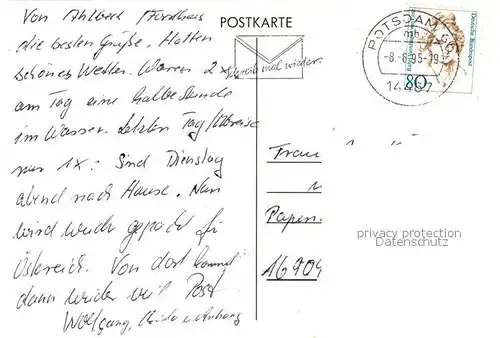 Von Ahlbeck / Fordhaus
die besten Grüße. Hatten
schönes Wetter. Waren 2 x
am Tag eine halbe Stunde
im Wasser. Letzten Tag / Abreise
nur 1x. Sind Dienstag
abend nach Hause. Nun
wird wieder gepackt für
Österreich. Von dort kommt
dann wieder mal Post
Wolfgang, u. Anhang
POSTKARTE
Schreib mal wieder.
POTSDAM
mb
-8.-8.95-19
144
Deutsche Bundespost
80
Frau
Papen
16909
privacy protection
Datenschutz